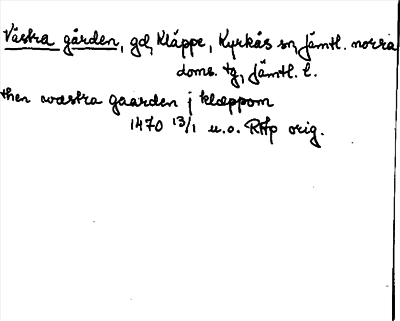 Västra gården, gd, Kläppe, Kyrkås sn, Jämtl. norra
doms. tg, Jämtl. l.
then wæstra gaarden j klæppom
1470 13/1 u.o. RAp orig.